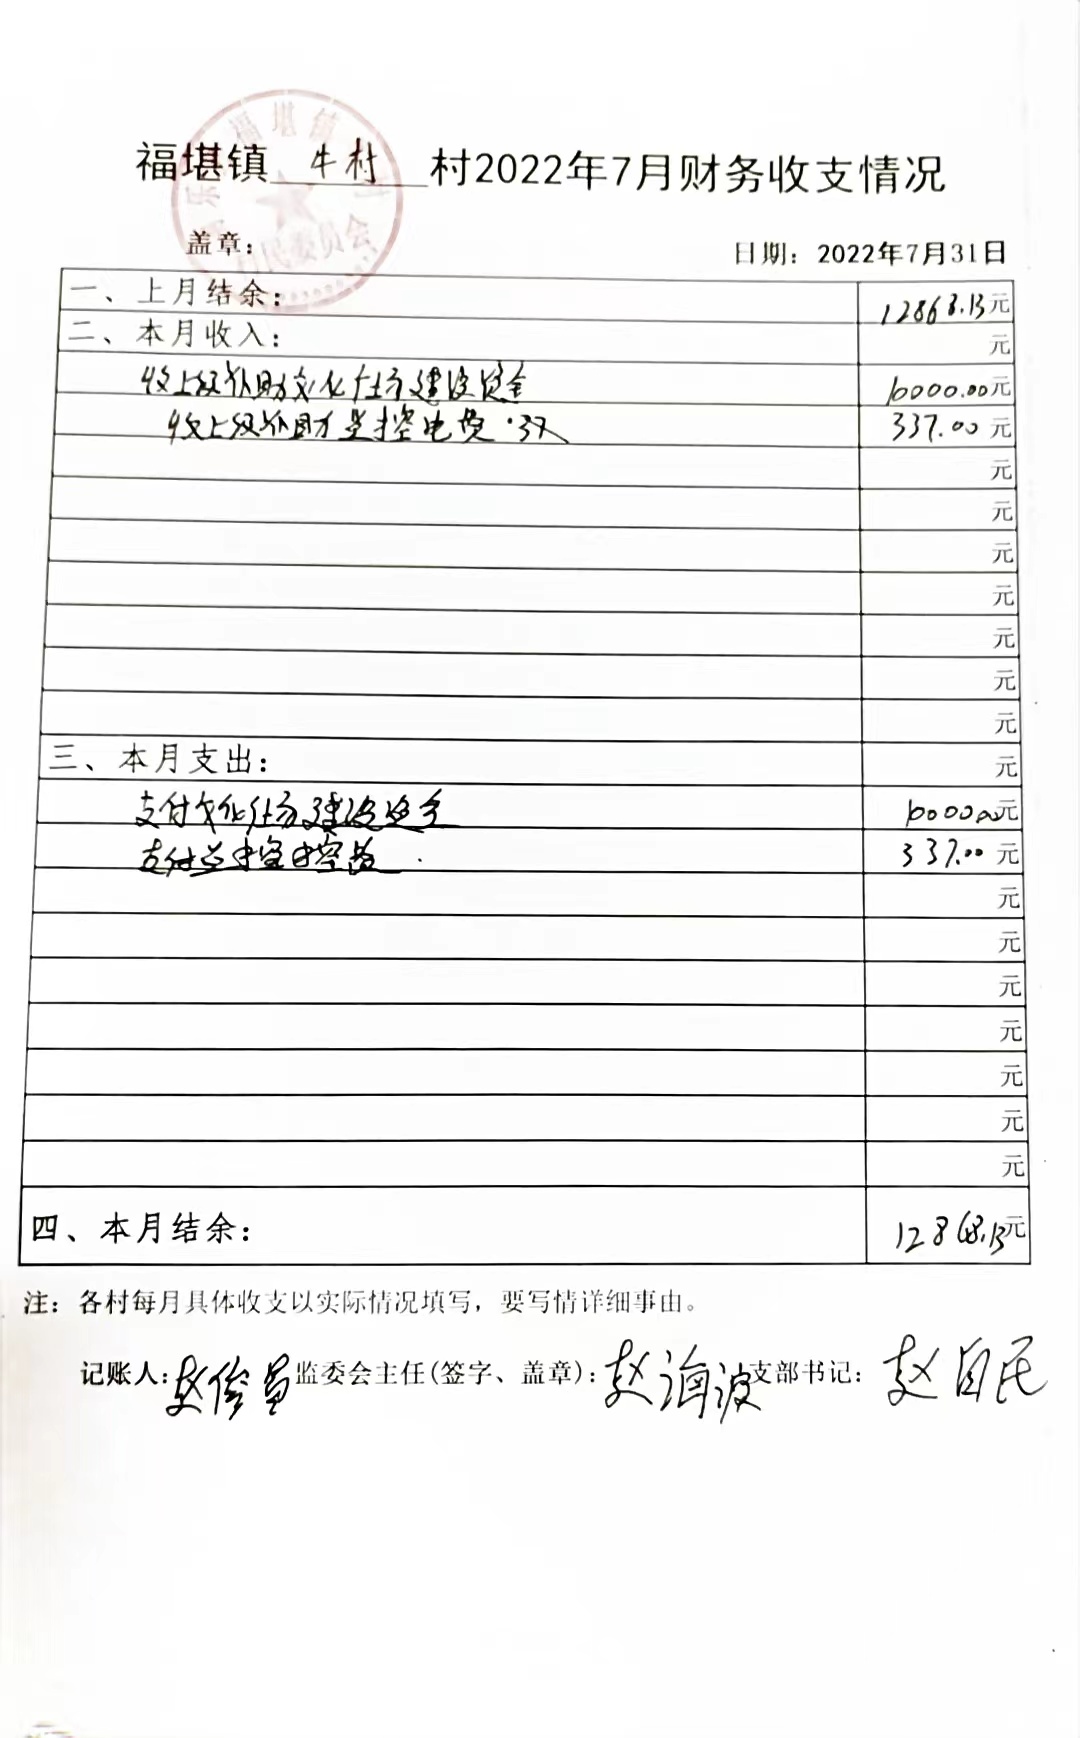 福堪镇 牛村 村2022年7月财务收支情况
福堪镇
村民委员会
盖章: 日期: 2022年7月31日
一、上月结余: 12868.13元
二、本月收入: 元
收上级补助文化广场建设资金 10000.00元
收上级补助监控电费款 337.00元
元
元
元
元
元
元
元
三、本月支出: 元
支付文化广场建设资金 10000.00元
支付监控 337.00元
元
元
元
元
元
元
元
四、本月结余: 12868.13元
注: 各村每月具体收支以实际情况填写, 要写情详细事由。
记账人: 赵俊 监委会主任(签字、盖章): 赵海波 支部书记: 赵自民